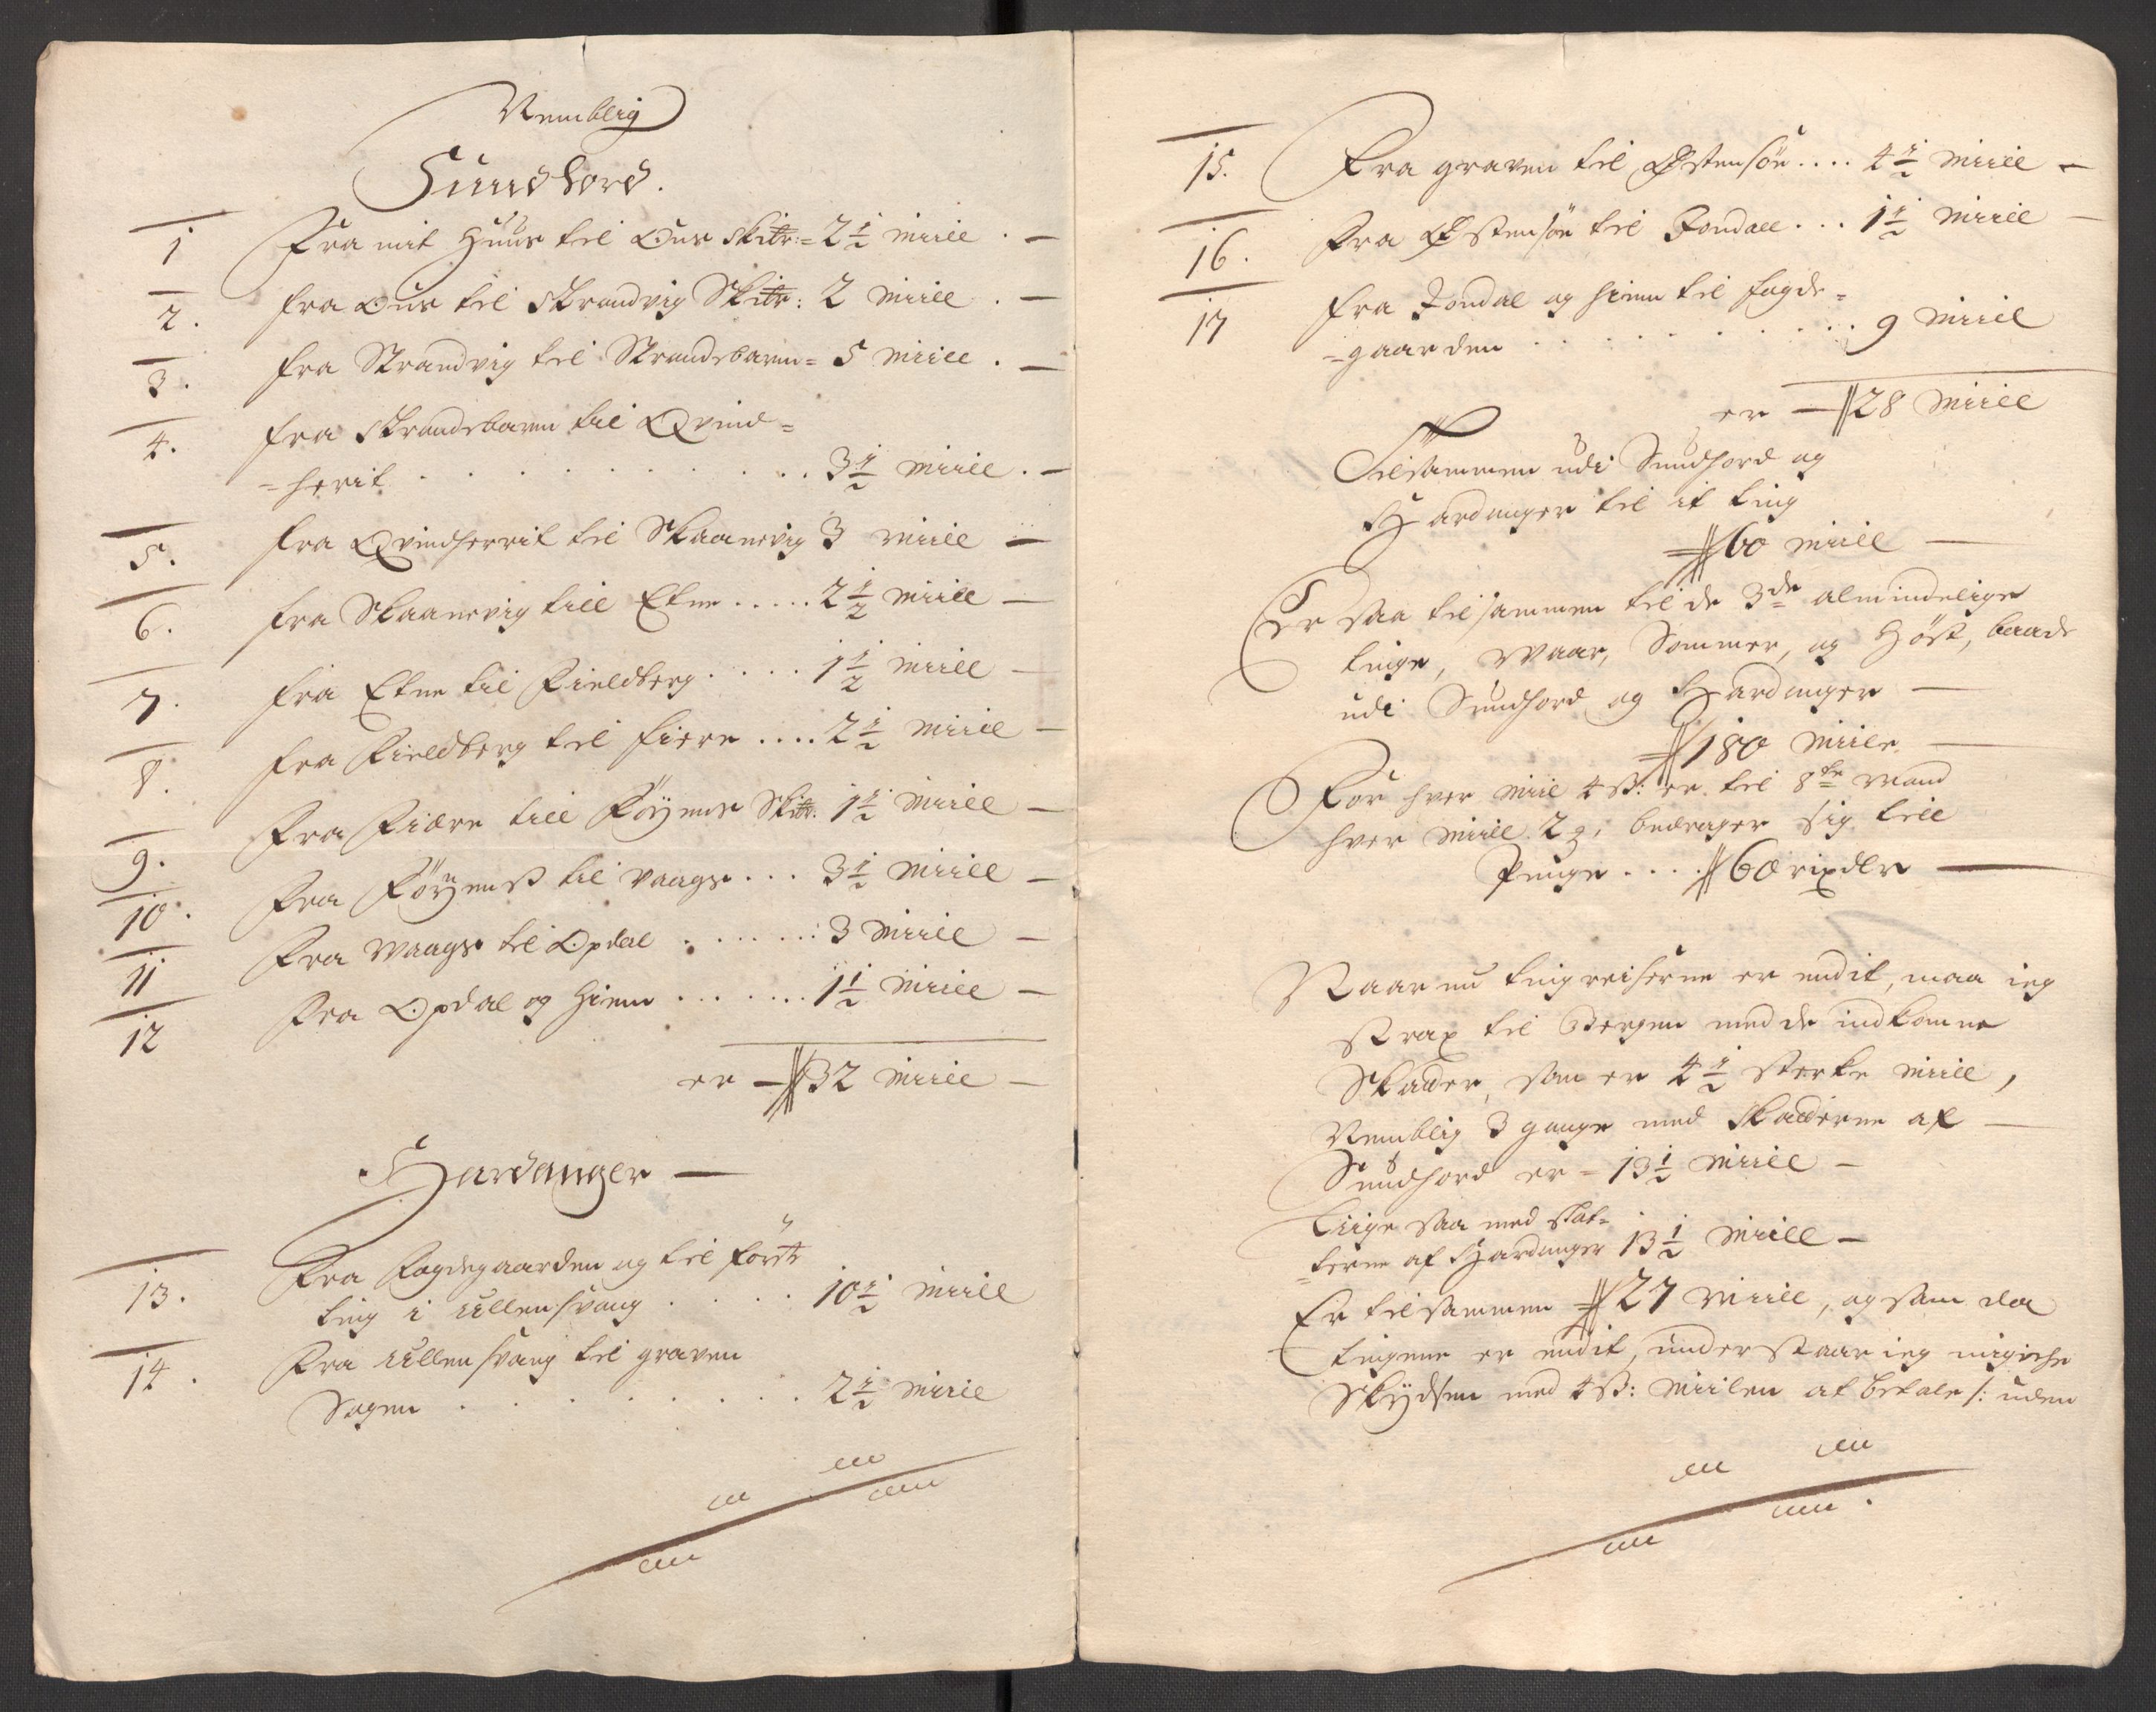 Nemblig
Sundhord.
1 Fra mit Huus til Ous Skibr:= 2 1/2 miill . —
2. fra Ous til Strandvig Skibr: 2 miill . —
3. fra Strandvig til Strandebarm = 5 miill . —
4. fra Strandebarm til Qvind=
=herit . . . . . . . . . 3 1/2 miill . —
5. fra Qvindherrit til Skaanevig 3 miill —
6. fra Skaanevig till Etne ..... 2 1/2 miill —
7. fra Etne til Fieldberg ..... 1 1/2 miill —
8. fra Fieldberg til fiere .... 2 1/2 miill —
9. Fra Fiære till Föÿens Skibr. 1 1/2 miill —
10. Fra Föÿens til Vaage ... 3 1/2 miill —
11 Fra Waage til Opdal ...... 3 miill —
12 Fra Opdal og Hiem ....... 1 1/2 miill —
er — 32 miill —
Hardanger —
13. Fra Fogdegaarden og til förste
ting i Ullensvang . . . . 10 1/2 miill
14. Fra Ullensvang til graven
Sogen . . . . . . . . 2 1/2 miill
15. Fra graven til Østensöe .... 4 1/2 miill —
16. Fra Østensöe til Jondall ... 1 1/2 miill —
17 fra Jondal og hiem til fogde=
=gaarden . . . . . . . . . 9 miill
er — 28 miill
Tilsammen udi Sundhord og
Hardanger til it ting
60 miill —
Er saa tilsammen til de 3de almindelige
tinge, Waar, Sommer, og Höst, baade
udi Sundhord og Hardanger —
180 miile —
For hver miil 4 ß: er til 8te Mand
hver miill 2 ß, bedrager sig till
Penge .... 60 rixdlr —
Naar nu tingreiserne er endit, maa ieg
strax til Bergen med de indkomne
Skatter, som er 4 1/2 sterke miill,
Nemblig 3 gange med Skatterne af —
Sundhord er = 13 1/2 miill —
Liige saa med skat=
=terne af Hardanger 13 1/2 miill —
Er tilsammen 27 miill, og som da
tingene er endit, understaar ieg mig iche
Skÿdsen med 4 ß: miilen at betale /: uden